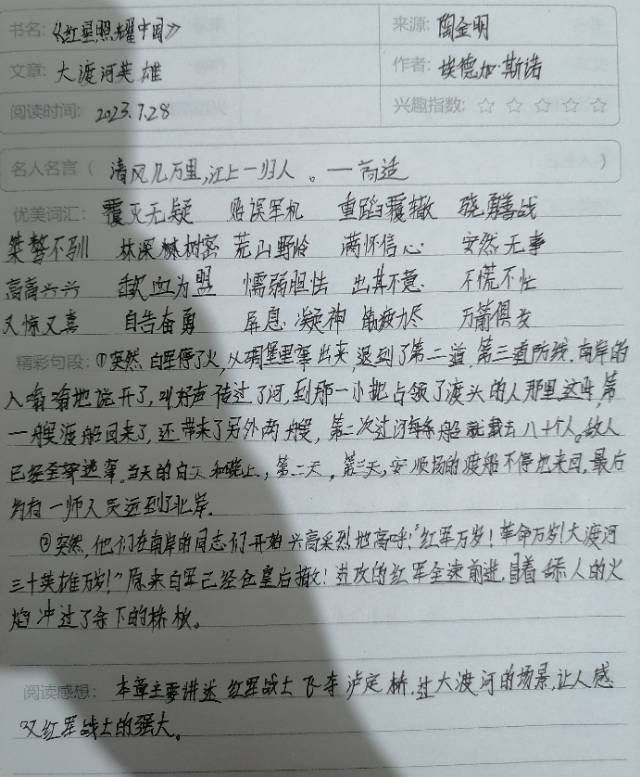 书名:《红星照耀中国》 来源: 陶金明
文章: 大渡河英雄 作者: 埃德加·斯诺
阅读时间: 2023.7.28 兴趣指数: ☆ ☆ ☆ ☆ ☆
名人名言( 清风几万里,江上一归人。—高适 )
优美词汇: 覆灭无疑 贻误军机 重蹈覆辙 骁勇善战
桀骜不驯 林深树密 荒山野岭 满怀信心 安然无事
高高兴兴 歃血为盟 懦弱胆怯 出其不意 不慌不忙
又惊又喜 自告奋勇 屏息凝神 筋疲力尽 万箭俱发
精彩句段: ①突然,白军停了火,从碉堡里窜出来,退到了第二道,第三道防线.南岸的
人嗡嗡地说开了,叫好声传过了河,到那一小批占领了渡头的人那里这时,第
一艘渡船回来了,还带来了另外两艘,第二次过河每条船就载去八十个人。敌人
已经全部逃窜。当天的白天和晚上,第二天,第三天,安顺场的渡船不停地来回,最后
约有一师人员运到了北岸.
②突然,他们在南岸的同志们开始兴高采烈地高呼!“红军万岁!革命万岁!大渡河
三十英雄万岁!”原来白军已经仓皇后撤!进攻的红军全速前进,冒着舔人的火
焰冲过了余下的桥板。
阅读感想: 本章主要讲述红军战士飞夺泸定桥,过大渡河的场景,让人感
叹红军战士的强大。